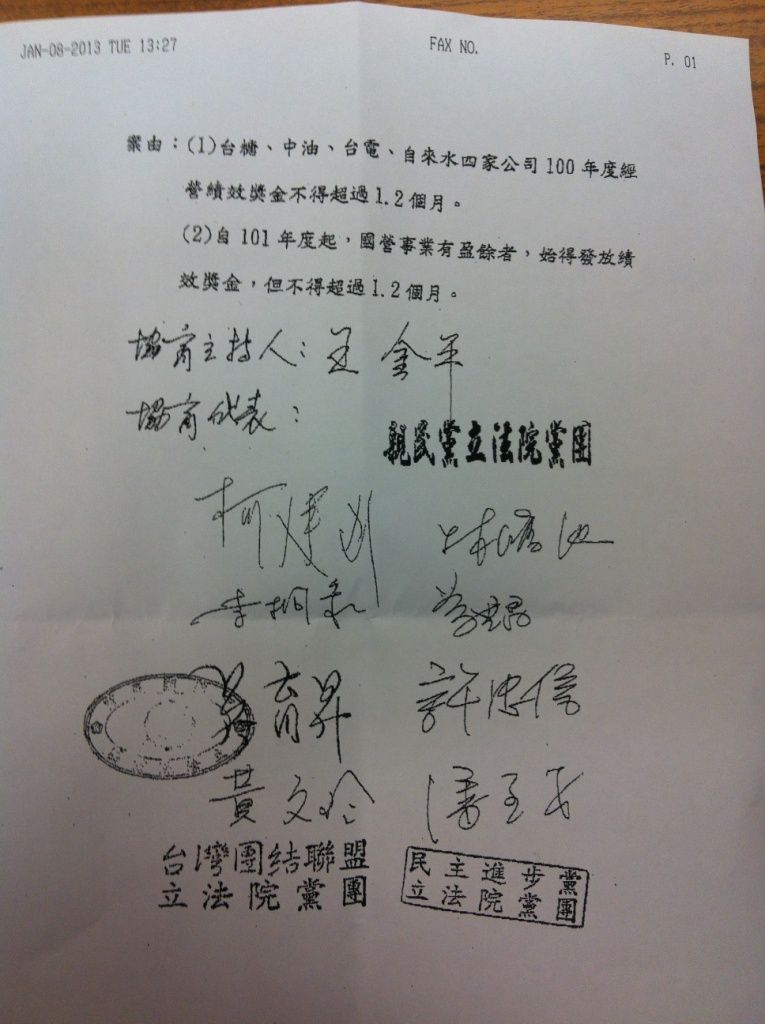 JAN-08-2013 TUE 13:27 FAX NO. P. 01
案由：(1)台糖、中油、台電、自來水四家公司 100 年度經
營績效獎金不得超過 1.2 個月。
(2)自 101 年度起，國營事業有盈餘者，始得發放績
效獎金，但不得超過 1.2 個月。
協商主持人：王金平
協商代表：
親民黨立法院黨團
柯建銘 林鴻池
李桐豪
吳育昇 許忠信
黃文玲 潘孟安
台灣團結聯盟
立法院黨團
民主進步黨
立法院黨團